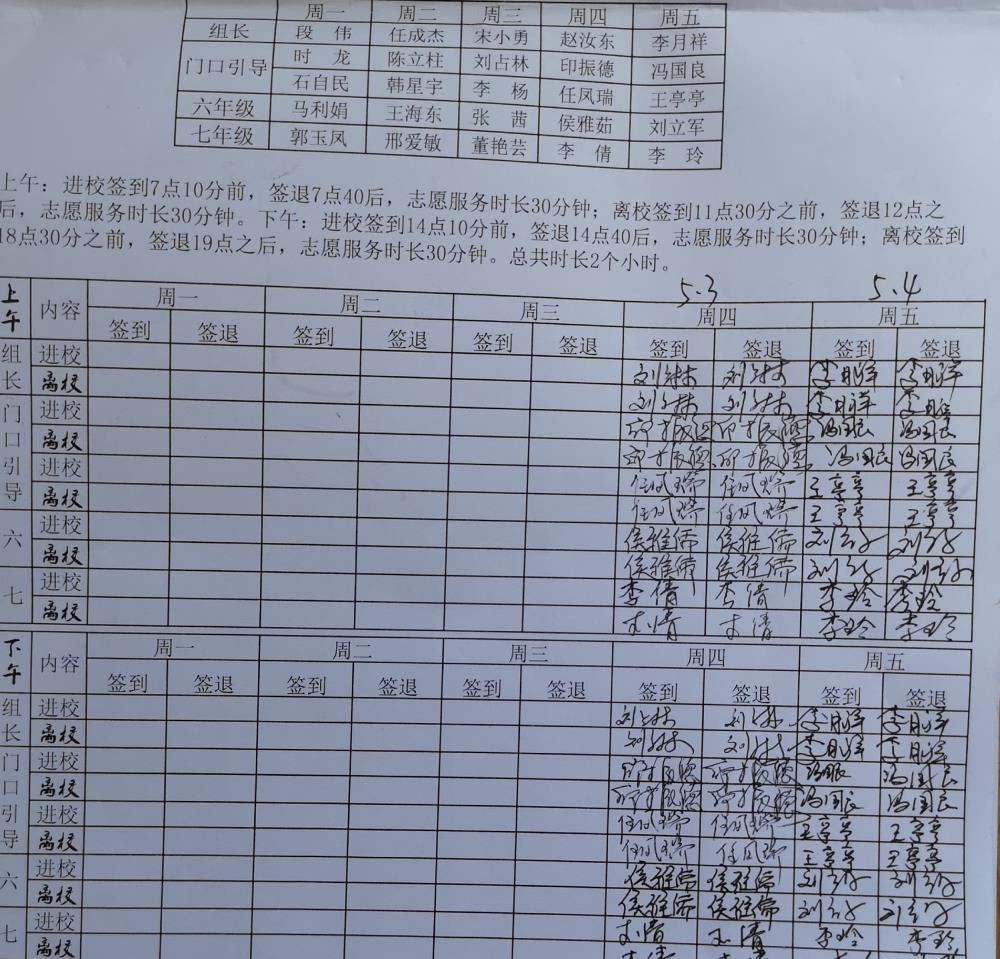 周一 周二 周三 周四 周五
组长 段伟 任成杰 宋小勇 赵汝东 李月祥
门口引导 时龙 陈立柱 刘占林 印振德 冯国良
石自民 韩星宇 李杨 任凤瑞 王亭亭
六年级 马利娟 王海东 张茜 侯雅茹 刘立军
七年级 郭玉凤 邢爱敏 董艳芸 李倩 李玲
上午：进校签到7点10分前，签退7点40后，志愿服务时长30分钟；离校签到11点30分之前，签退12点之
后，志愿服务时长30分钟。下午：进校签到14点10分前，签退14点40后，志愿服务时长30分钟；离校签到
18点30分之前，签退19点之后，志愿服务时长30分钟。总共时长2个小时。
5.3 5.4
上午 内容 周一 周二 周三 周四 周五
签到 签退 签到 签退 签到 签退 签到 签退 签到 签退
组长 进校 李月祥 李月祥
离校 李月祥 李月祥
门口引导 进校 印振德 印振德 冯国良 冯国良
离校 印振德 印振德 冯国良 冯国良
进校 任凤瑞 任凤瑞 王亭亭 王亭亭
离校 任凤瑞 任凤瑞 王亭亭 王亭亭
六 进校 侯雅儒 侯雅儒 刘立军 刘立军
离校 侯雅儒 侯雅儒 刘立军 刘立军
七 进校 李倩 李倩 李玲 李玲
离校 李倩 李倩 李玲 李玲
下午 内容 周一 周二 周三 周四 周五
签到 签退 签到 签退 签到 签退 签到 签退 签到 签退
组长 进校 李月祥 李月祥
离校 李月祥 李月祥
门口引导 进校 印振德 印振德 冯国良
离校 印振德 印振德 冯国良 冯国良
进校 任凤瑞 任凤瑞 王亭亭 王亭亭
离校 任凤瑞 任凤瑞 王亭亭 王亭亭
六 进校 侯雅儒 侯雅儒 刘立军 刘立军
离校 侯雅儒 侯雅儒 刘立军 刘立军
七 进校 李倩 李倩 李玲 李玲
离校